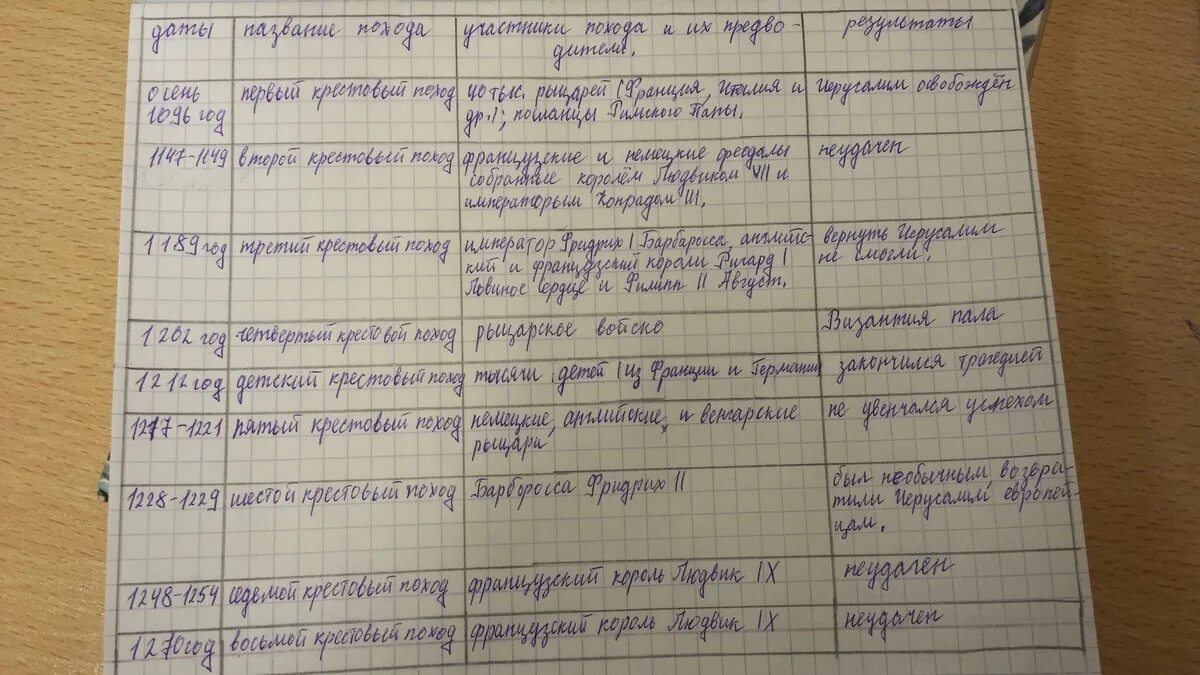 даты название похода участники похода и их предво- результаты
дители.
осень первый крестовый поход 40 тыс. рыцарей (Франция, Италия и Иерусалим освобождён
1096 год др.); посланцы Римского Папы.
1147-1149 второй крестовый поход французские и немецкие феодалы неудачен
собранные королём Людвиком VII и
императорым Конрадом III.
1189 год третий крестовый поход император Фридрих I Барбаросса, английс- вернуть Иерусалим
кий и французский короли Ричард I не смогли.
Львиное Сердце и Филипп II Август.
1202 год четвертый крестовой поход рыцарское войско Византия пала
1212 год детский крестовый поход тысячи детей (из Франции и Германии закончился трагедией
1217-1221 пятый крестовый поход немецкие, английские и венгарские не увенчался успехом
рыцари
1228-1229 шестой крестовый поход Барборосса Фридрих II был необычным, возвра-
тили Иерусалим европей-
цам.
1248-1254 седьмой крестовый поход французский король Людвик IX неудачен
1270 год восьмой крестовый поход французский король Людвик IX неудачен